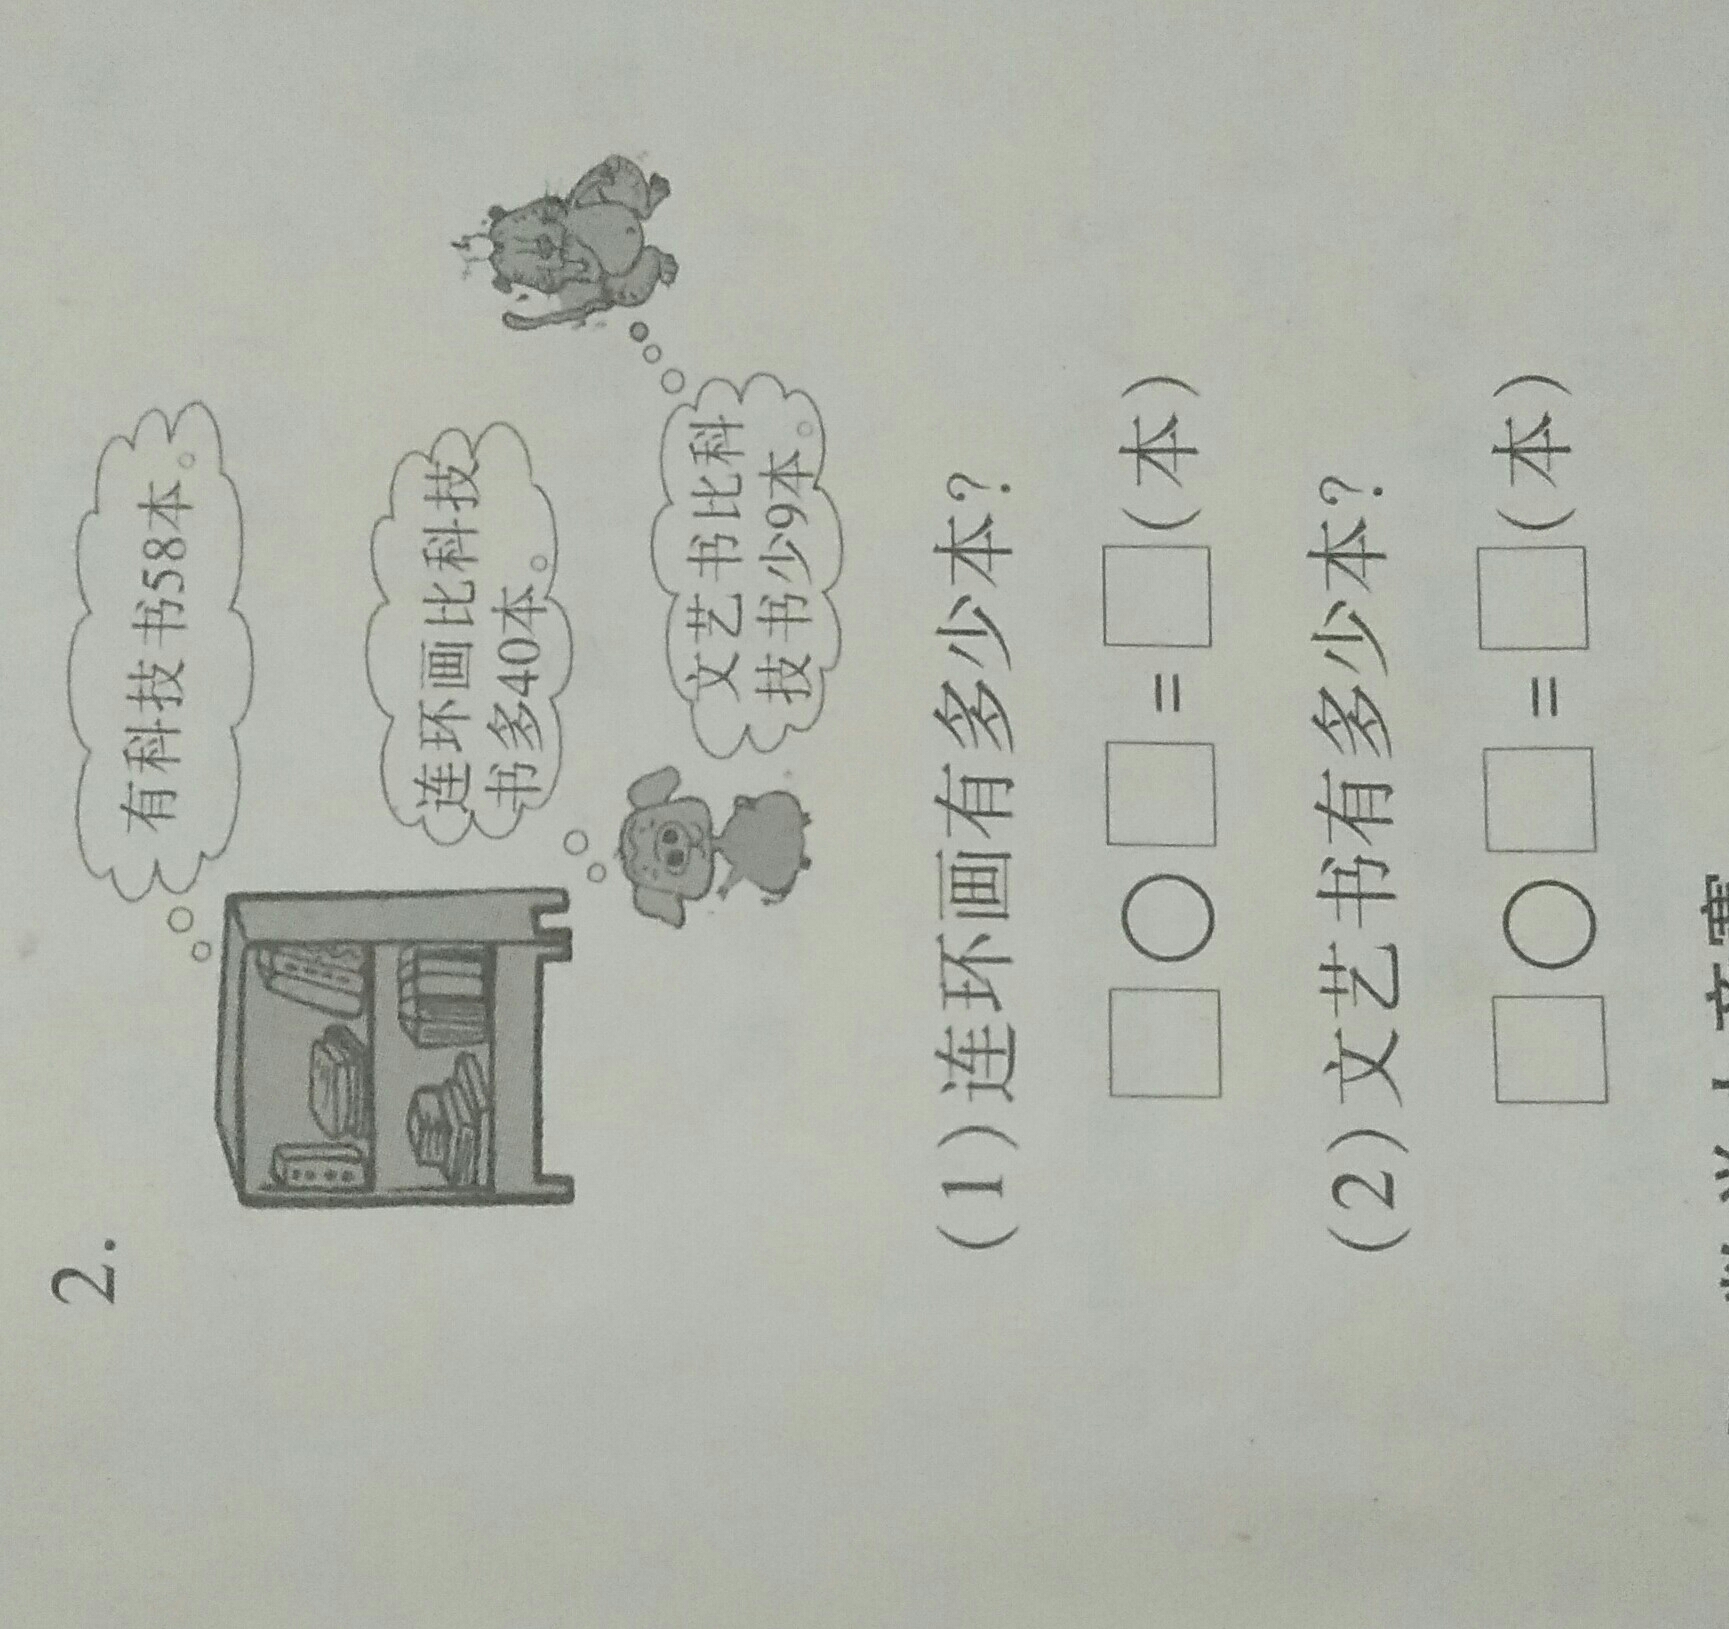 2.
有科技书58本。
连环画比科技
书多40本。
文艺书比科
技书少9本。
(1)连环画有多少本？
□○□=□(本)
(2)文艺书有多少本？
□○□=□(本)